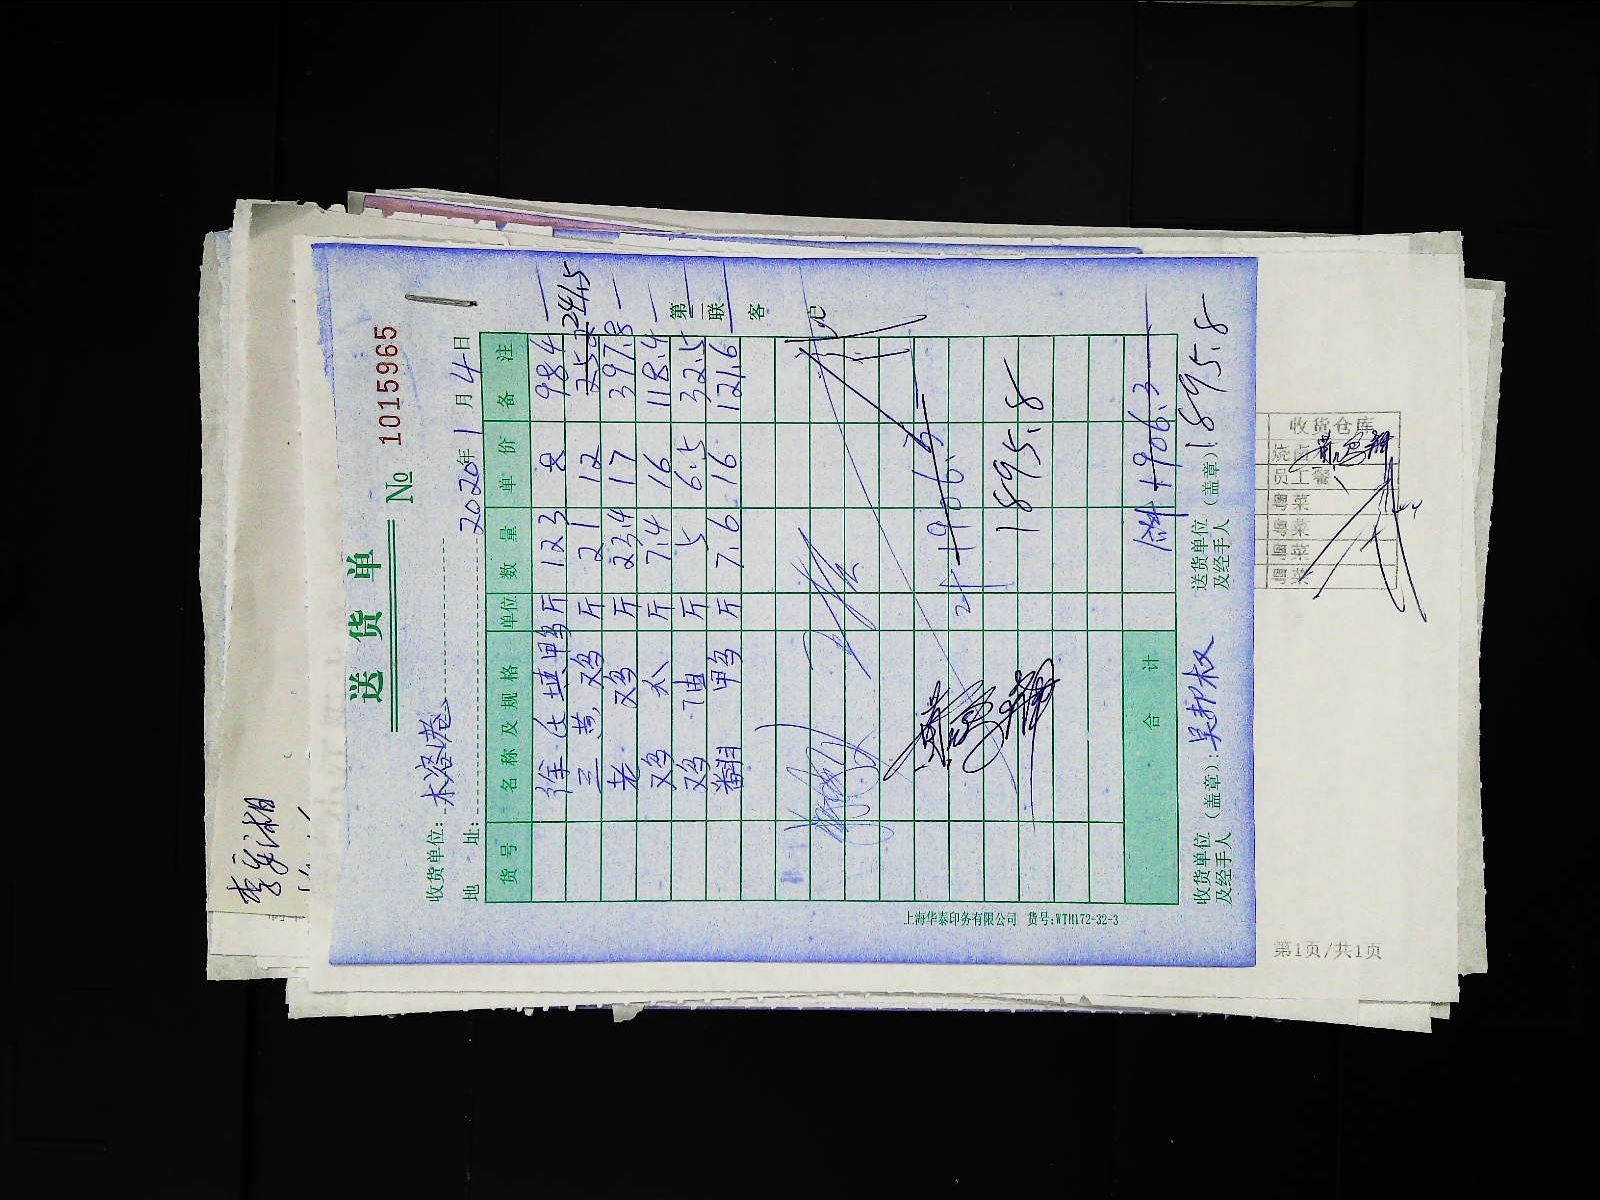 送货单
№ 1015965
收货单位:
地 址: 2020年1月4日
货号 名称及规格 单位 数量 单价 备注
斤 123 8 984
三黄鸡 斤 21 12 252 241.5
老鸡 斤 23.4 17 397.8
鸡 斤 7.4 16 118.4
鸡 斤 5 6.5 32.5
翻鸭 斤 7.6 16 121.6
第 联 客
1906.3
1895.8
合计 1906.3
收货单位及经手人(盖章): 送货单位及经手人(盖章): 1895.8
上海华泰印务有限公司 货号:WTH172-32-3
收货仓库
烧卤
员工餐
粤菜
粤菜
粤菜
粤菜
第1页/共1页